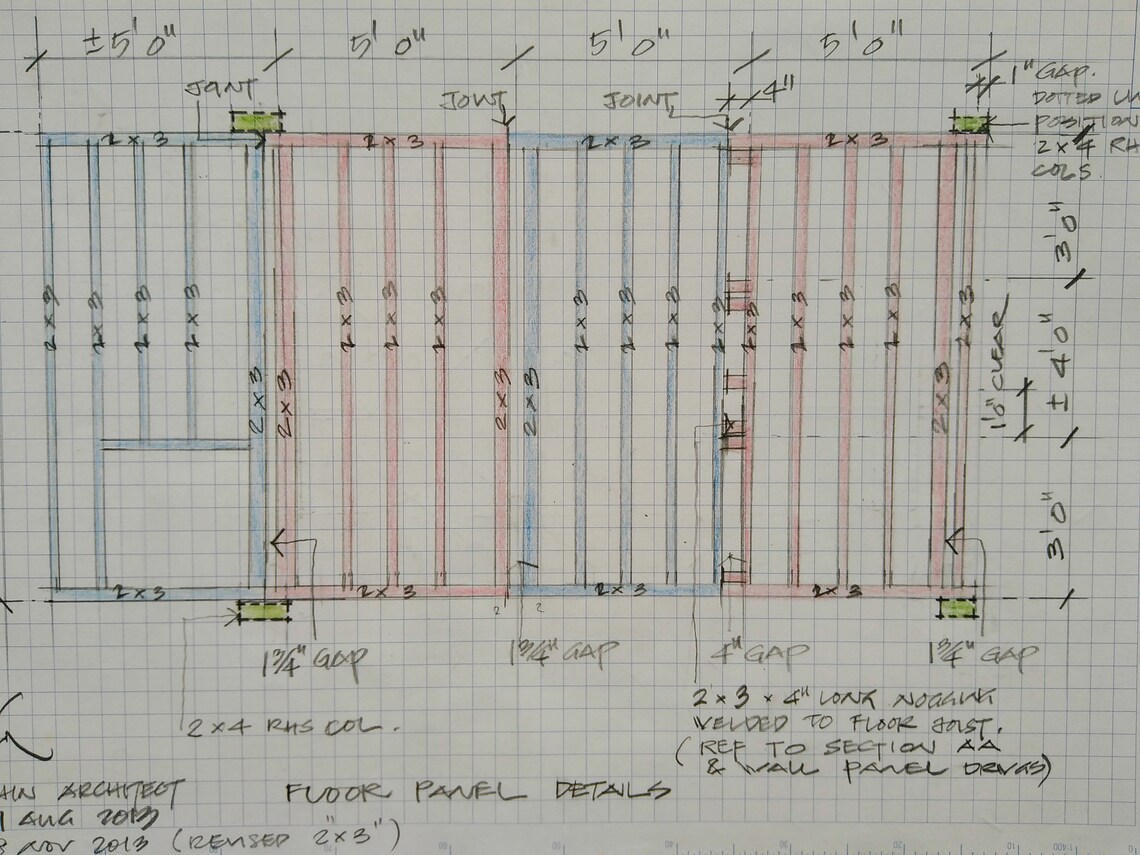 ± 5' 0"
5' 0"
5' 0"
5' 0"
JOINT
JOINT
JOINT
4"
1" GAP.
DOTTED
POSITION
2 x 4 RH
COLS
2 x 3
2 x 3
2 x 3
2 x 3
3' 0"
2 x 3
2 x 3
2 x 3
2 x 3
2 x 3
2 x 3
2 x 3
2 x 3
2 x 3
2 x 3
2 x 3
2 x 3
2 x 3
2 x 3
2 x 3
2 x 3
2 x 3
2 x 3
2 x 3
2 x 3
2 x 3
1'0" CLEAR
± 4' 0"
3' 0"
2 x 3
2 x 3
2 x 3
2 x 3
2
2
1 3/4" GAP
1 3/4" GAP
4" GAP
1 3/4" GAP
2 x 4 RHS COL.
2 x 3 x 4" LONG NOGGING
WELDED TO FLOOR JOIST.
(REF TO SECTION AA
& WALL PANEL DRWGS)
ARCHITECT
FLOOR PANEL DETAILS
AUG 2013
NOV 2013 (REVISED 2"x3")